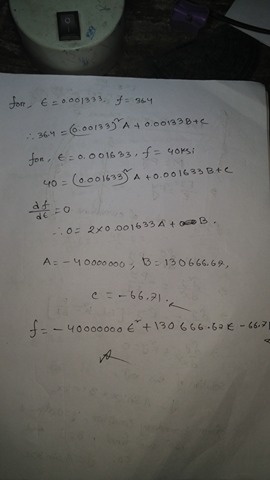 for, ε = 0.001333, f = 364
∴ 364 = (0.00133)² A + 0.00133B + C
for, ε = 0.001633, f = 40ksi
40 = (0.001633)² A + 0.001633B + C
df/dε = 0
∴ 0 = 2×0.001633A + B.
A = -40000000; B = 130666.62,
c = -66.71.
f = -40000000 ε² + 130666.62ε - 66.71